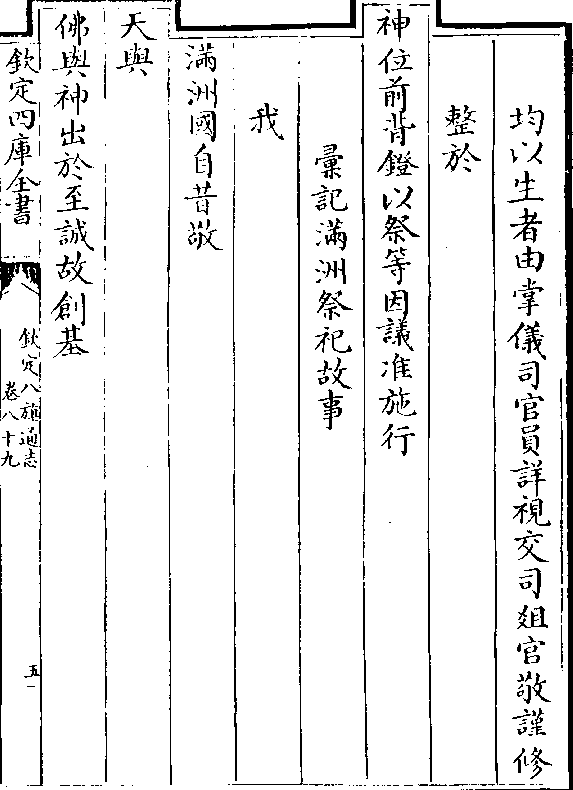 均以生者由掌儀司官員詳視交司俎官敬謹修
整於
神位前背鐙以祭等因議准施行
彙記滿洲祭祀故事
我
滿洲國自昔敬
天與
佛與神出於至誠故創基
欽定四庫全書
欽定八旗通志
卷八十九
五